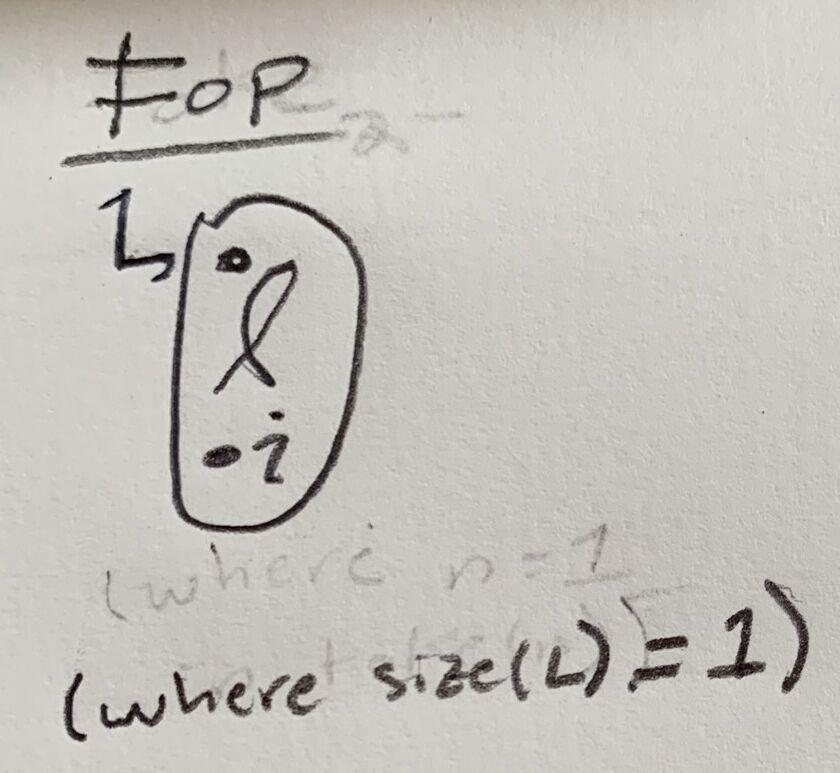 FOP
L
l
i
(where n=1
(where size(L) = 1)